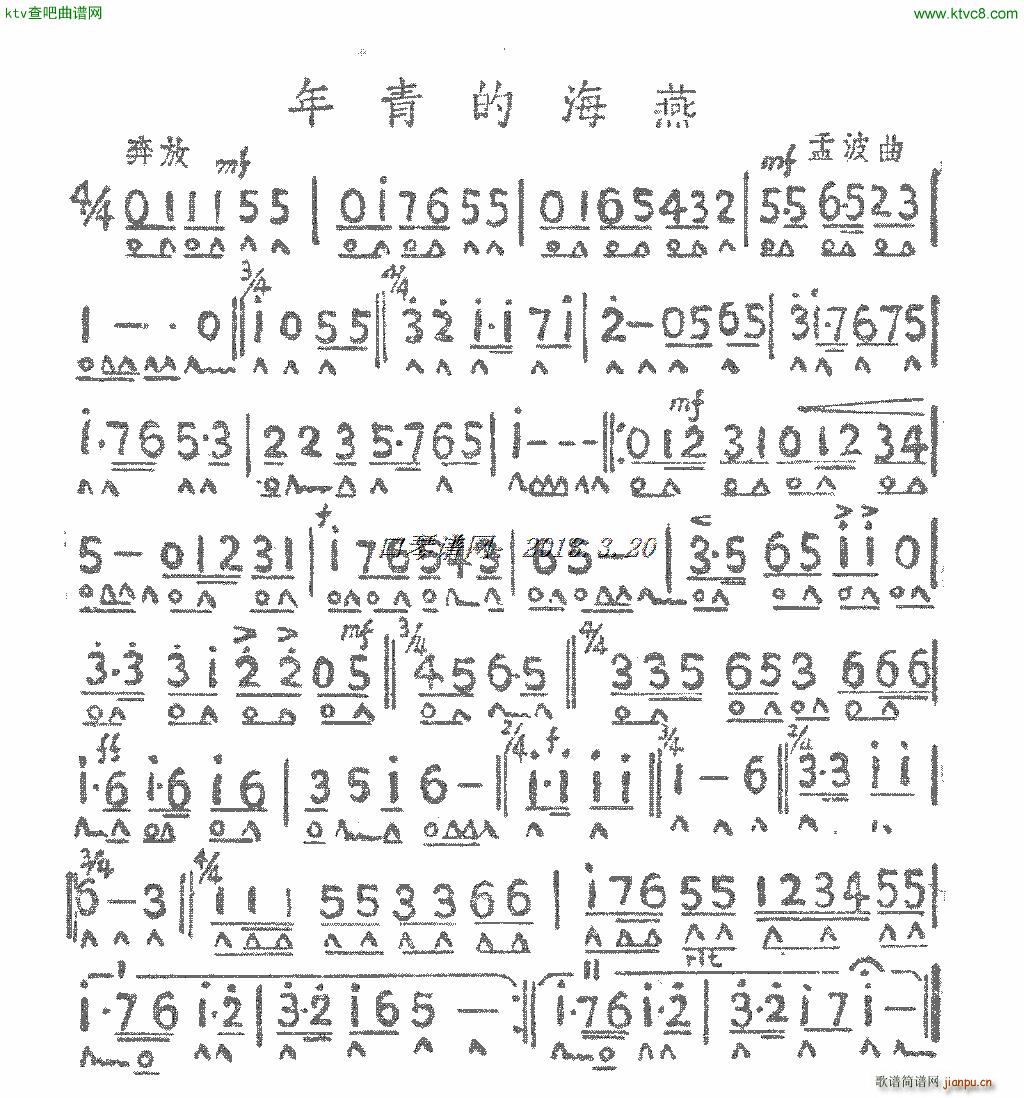 ktv查吧曲谱网 www.ktvc8.com
年青的海燕
奔放 mf mf 孟波曲
4/4 0 1 1 1 5 5 | 0 i 7 6 5 5 | 0 1 6 5 4 3 2 | 5·5 6·5 2 3 |
3/4 4/4
1 - · 0 || i 0 5 5 || 3 2 i·i 7 i | 2 - 0 5 6 5 | 3 i·7 6 7 5 |
mf
i·7 6 5·3 | 2 2 3 5·7 6 5 | i - - - ||: 0 1 2 3 1 0 1 2 3 4 |
f < > >
5 - 0 1 2 3 1 | i 7 6 5 4 3 | 6 5 - | 3·5 6 5 i i 0
口琴谱网 2013.3.20
> > mf 3/4 4/4
3·3 3 i 2 2 0 5 || 4·5 6·5 || 3 3 5 6 5 3 6 6 6 |
ff 2/4 f 3/4 2/4
i·6 i·6 i 6 | 3 5 i 6 - || i·i i i || i - 6 || 3·3 i i |
3/4 4/4
6 - 3 || 1 1 1 5 5 3 3 6 6 | i 7 6 5 5 1 2 3 4 5 5 |
rit
i·7 6 i·2 | 3·2 i 6 5 - :|| i·7 6 i·2 | 3·2 i 7 i - ||
歌谱简谱网 jianpu.cn